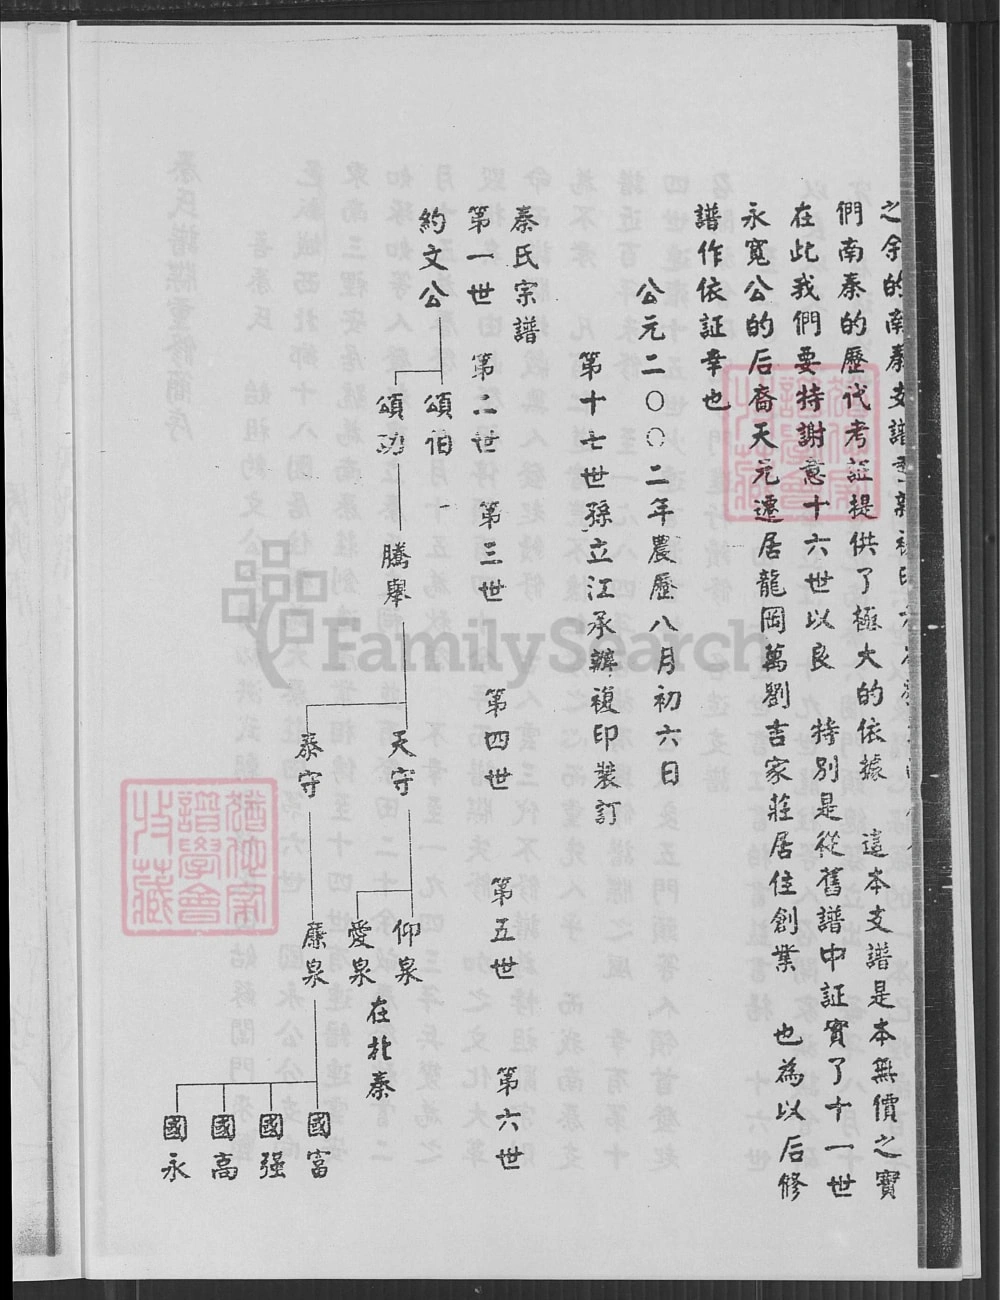 之余的南秦支譜
們南秦的歷代考証提供了極大的依據 這本支譜是本無價之寶
在此我們要特謝意十六世以良 特別是從舊譜中証實了十一世
永寬公的后裔天元遷居龍岡萬劉吉家莊居住創業 也為以后修
譜作依証幸也
公元二〇〇二年農歷八月初六日
第十七世孫立江承辦複印裝訂
秦氏宗譜
第一世 第二世 第三世 第四世 第五世 第六世
約文公
頌伯
頌功
騰舉
天守
泰守
仰泉
愛泉
在北秦
廉泉
國富
國强
國高
國永
FamilySearch